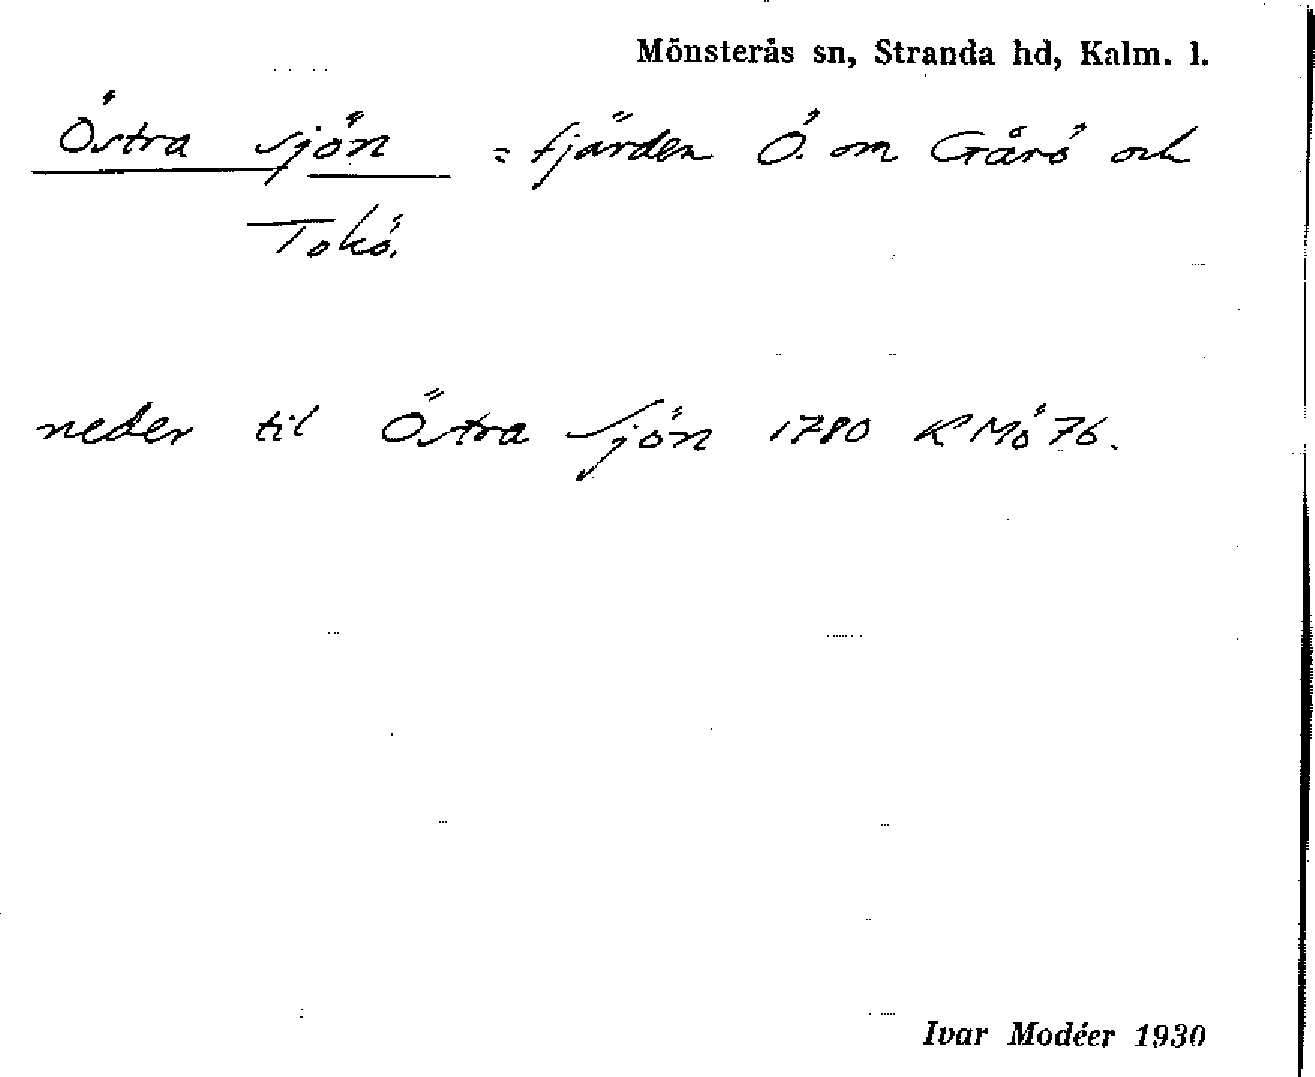 Mönsterås sn, Stranda hd, Kalm. l.
Östra sjön = fjärden Ö. om Gårö och
Tokö.
neder til Östra Sjön 1780 R Mö 76.
Ivar Modéer 1930